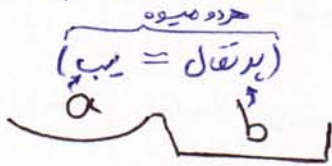 هردو میوه
(پرتقال = سیب)
a b